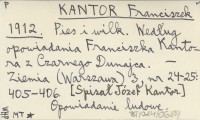 P
KANTOR Franciszek
1912. Pies i wilk. Według
opowiadania Franciszka Kanto-
ra z Czarnego Dunajca. —
Ziemia (Warszawa) 3, nr 24-25:
405-406 [Spisał Józef Kantor.]
Opowiadanie ludowe.
MT*